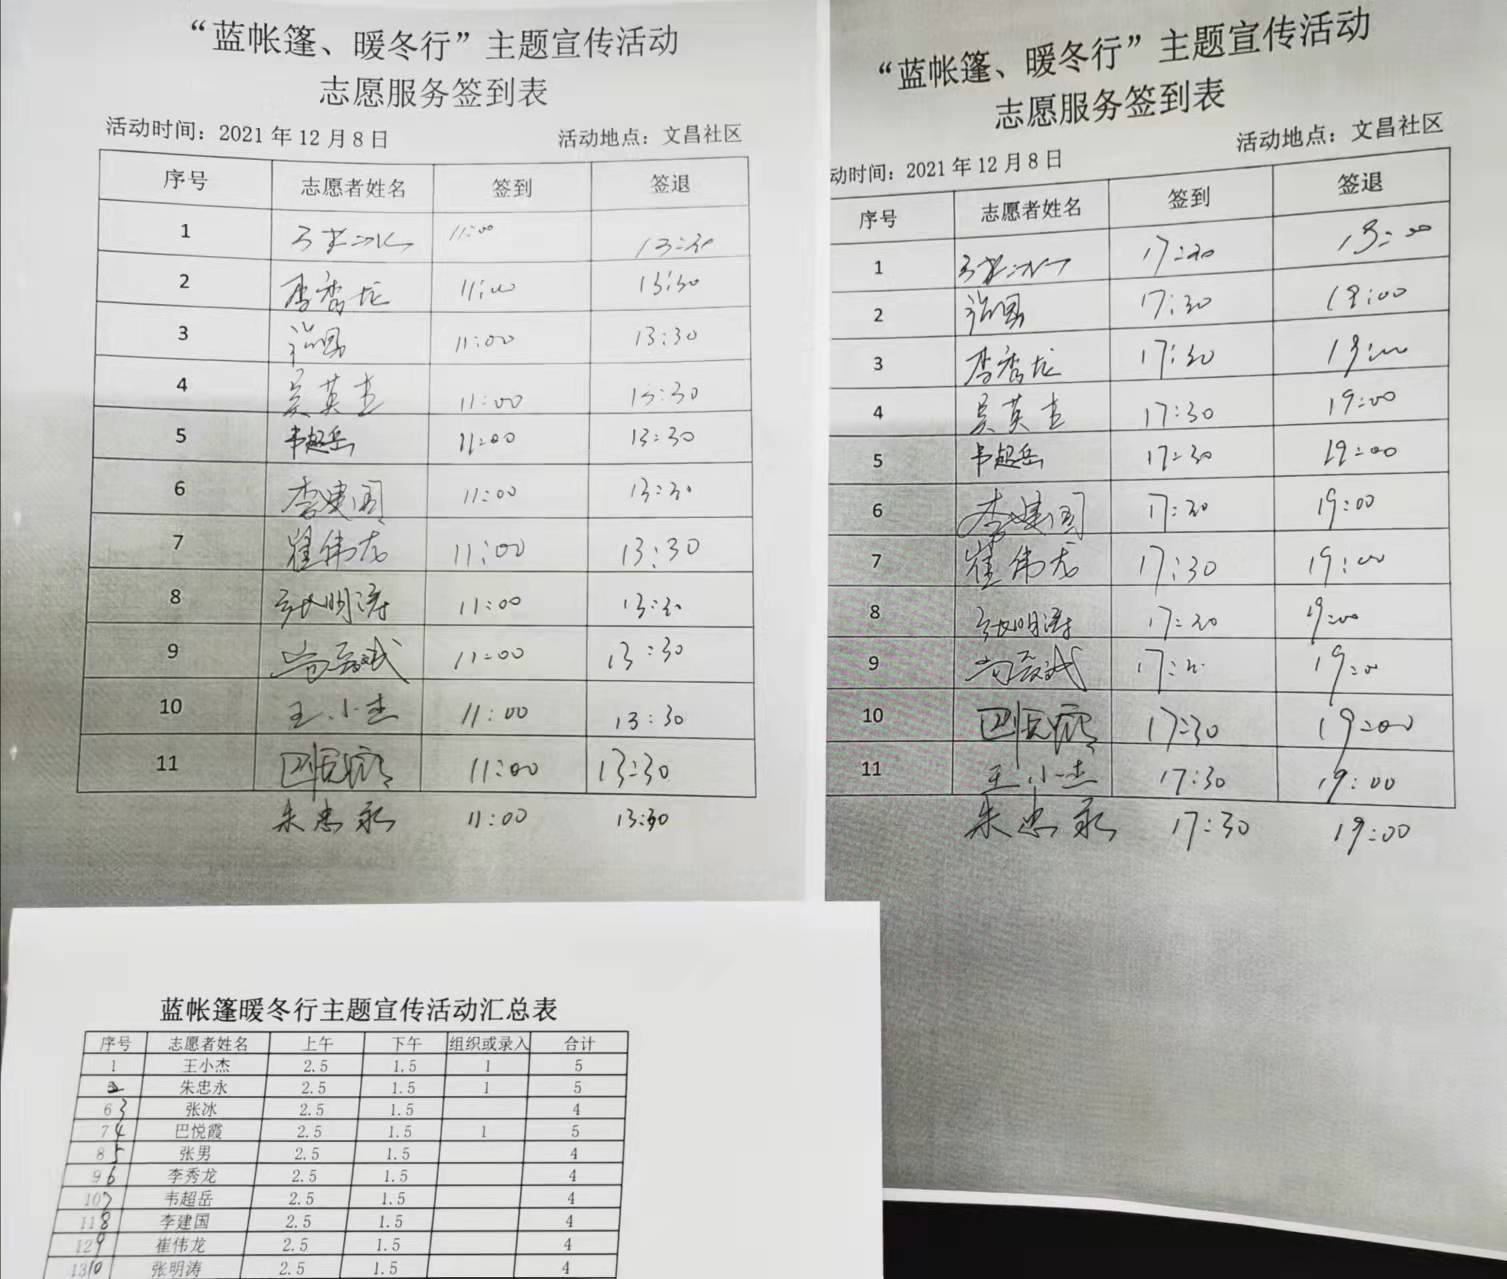 “蓝帐篷、暖冬行”主题宣传活动
志愿服务签到表
活动时间：2021年12月8日 活动地点：文昌社区
序号 志愿者姓名 签到 签退
1 张冰 11:00 13:30
2 李秀龙 11:00 13:30
3 张男 11:00 13:30
4 吴英杰 11:00 13:30
5 韦超岳 11:00 13:30
6 李建国 11:00 13:30
7 崔伟龙 11:00 13:30
8 张明涛 11:00 13:30
9 11:00 13:30
10 王小杰 11:00 13:30
11 巴悦霞 11:00 13:30
朱忠永 11:00 13:30
“蓝帐篷、暖冬行”主题宣传活动
志愿服务签到表
动时间：2021年12月8日 活动地点：文昌社区
序号 志愿者姓名 签到 签退
1 张冰 17:30 19:00
2 张男 17:30 19:00
3 李秀龙 17:30 19:00
4 吴英杰 17:30 19:00
5 韦超岳 17:30 19:00
6 李建国 17:30 19:00
7 崔伟龙 17:30 19:00
8 张明涛 17:30 19:00
9 19:00
10 巴悦霞 17:30 19:00
11 王小杰 17:30 19:00
朱忠永 17:30 19:00
蓝帐篷暖冬行主题宣传活动汇总表
序号 志愿者姓名 上午 下午 组织或录入 合计
1 王小杰 2.5 1.5 1 5
2 朱忠永 2.5 1.5 1 5
6 3 张冰 2.5 1.5 4
7 4 巴悦霞 2.5 1.5 1 5
8 5 张男 2.5 1.5 4
9 6 李秀龙 2.5 1.5 4
10 7 韦超岳 2.5 1.5 4
11 8 李建国 2.5 1.5 4
12 9 崔伟龙 2.5 1.5 4
13 10 张明涛 2.5 1.5 4